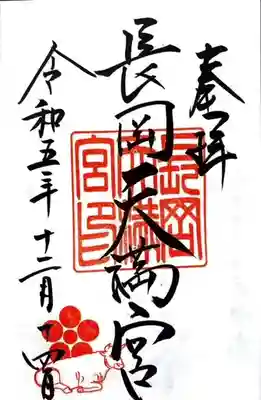 奉拝
長岡天満宮
長岡天満宮印
令和五年十二月十四日